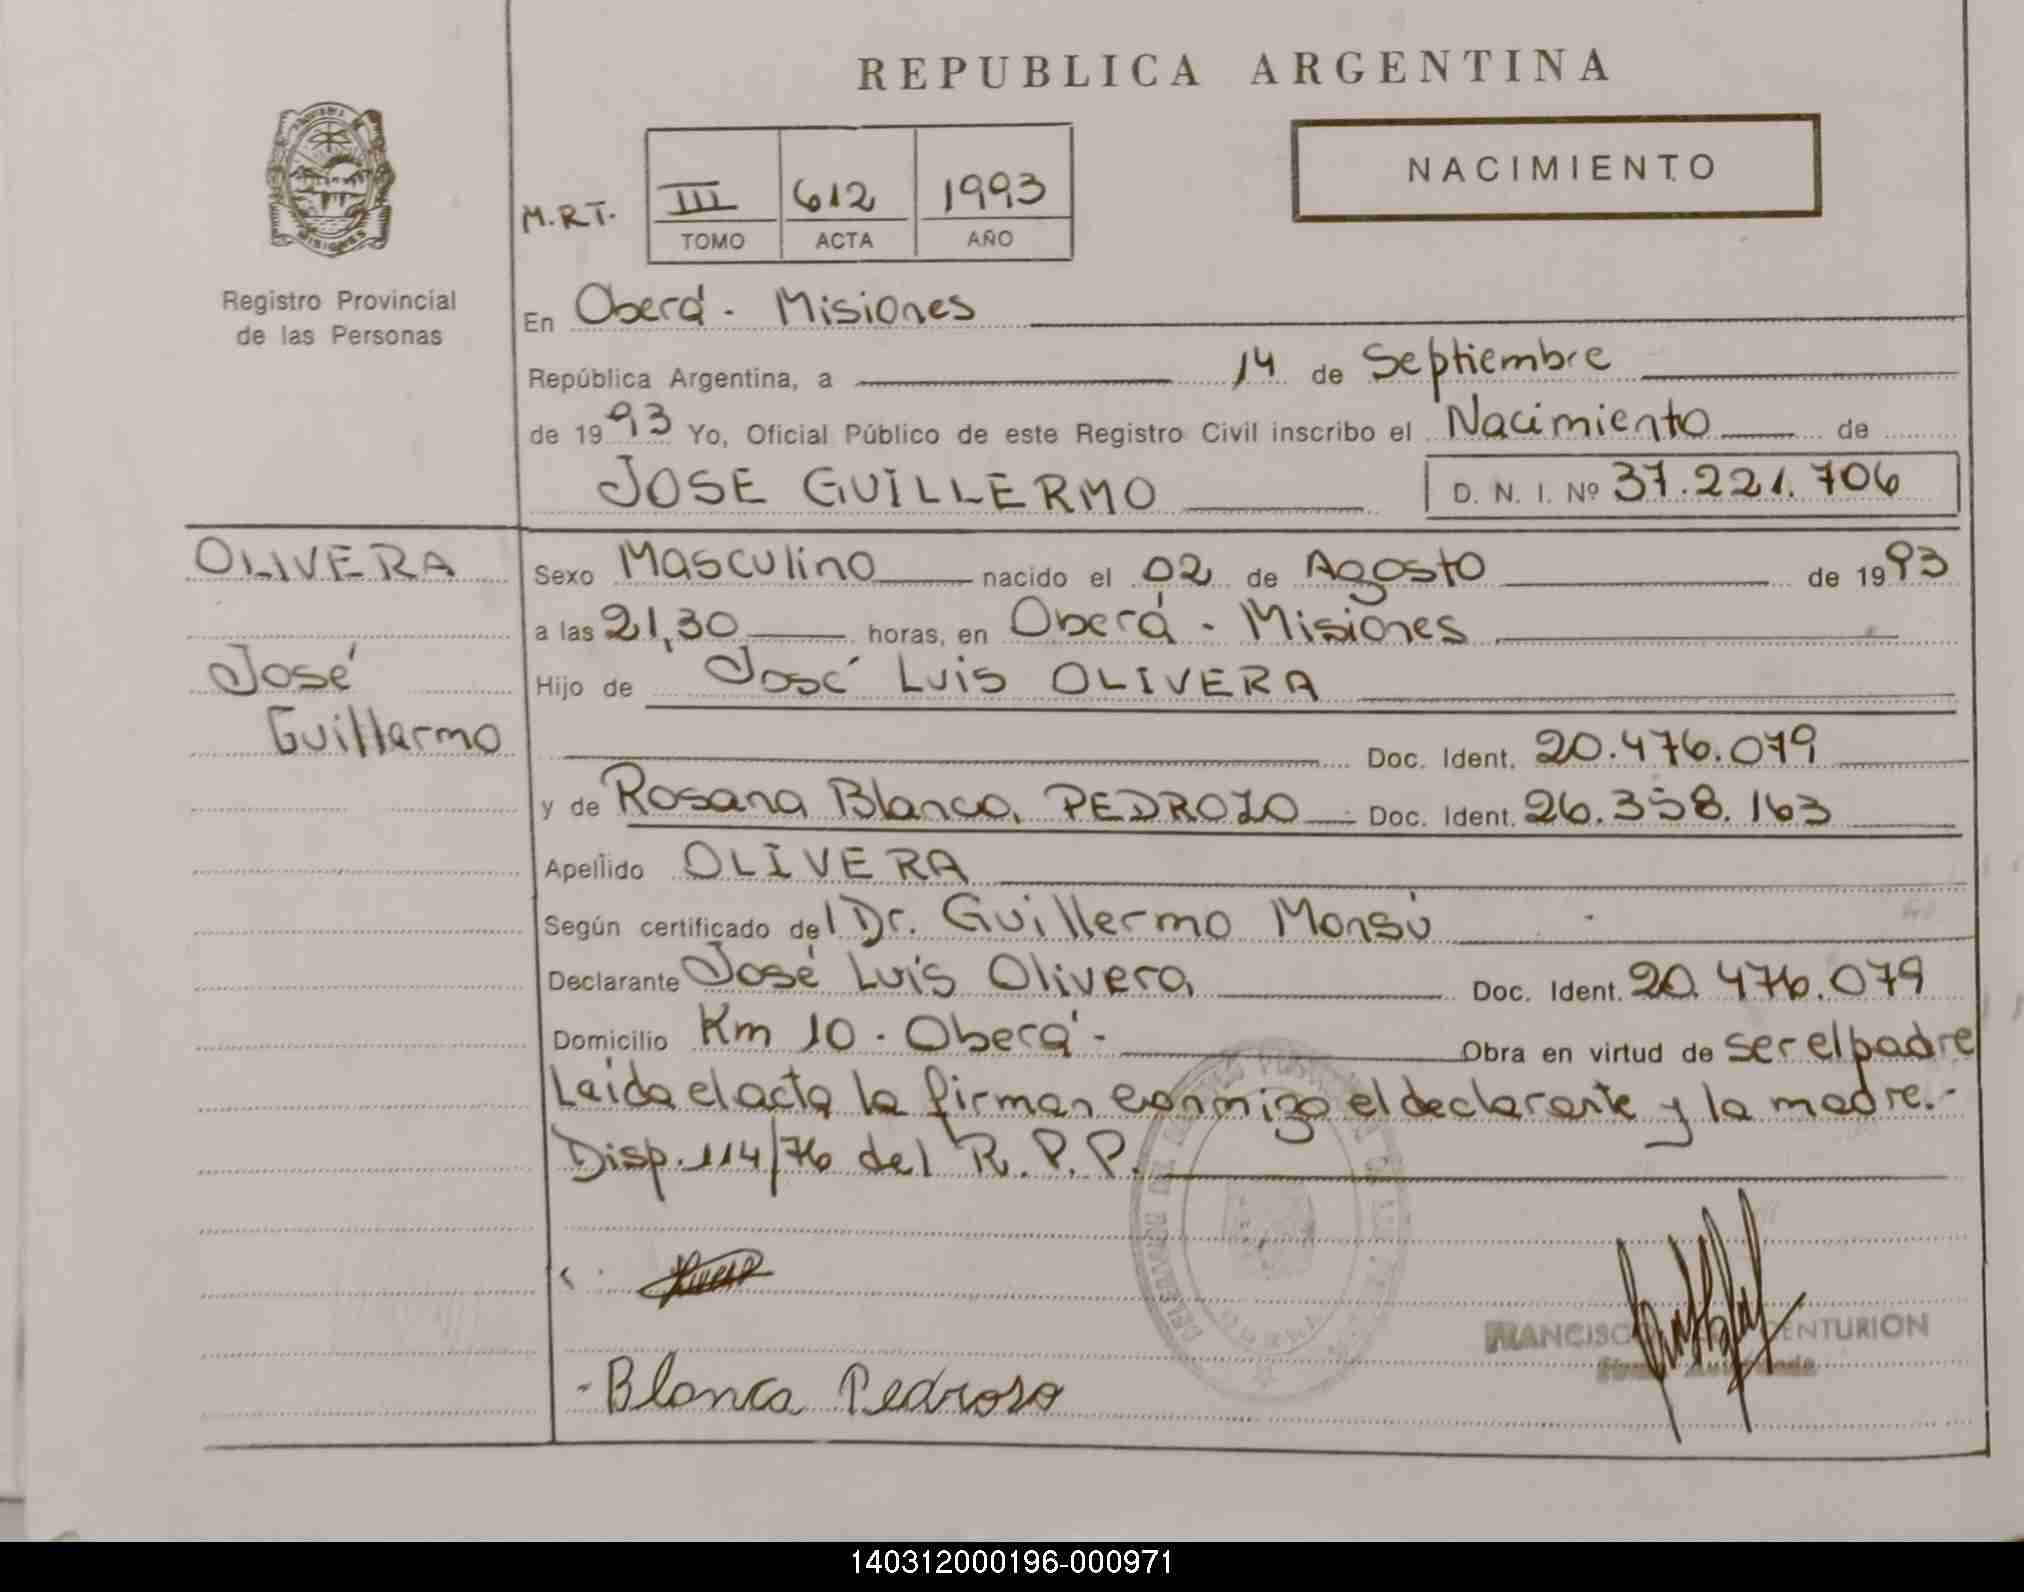 REPUBLICA ARGENTINA
NACIMIENTO
M.R.T.
III 612 1993
TOMO ACTA AÑO
MISIONES
Registro Provincial
de las Personas
En Oberá - Misiones
República Argentina, a 14 de Septiembre
de 1993 Yo, Oficial Público de este Registro Civil inscribo el Nacimiento de
JOSE GUILLERMO D. N. I. Nº 37.221.706
OLIVERA
José
Guillermo
Sexo Masculino nacido el 02 de Agosto de 1993
a las 21,30 horas, en Oberá - Misiones
Hijo de José Luis OLIVERA
Doc. Ident. 20.476.079
y de Rosana Blanca PEDROZO Doc. Ident. 26.358.163
Apellido OLIVERA
Según certificado del Dr. Guillermo Monsú
Declarante José Luis Olivera Doc. Ident. 20.476.079
Domicilio Km 10 - Oberá - Obra en virtud de ser el padre
Leída el acta la firman conmigo el declarante y la madre.-
Disp. 114/76 del R.P.P.
FRANCISCO CENTURION
- Blanca Pedroso
140312000196-000971